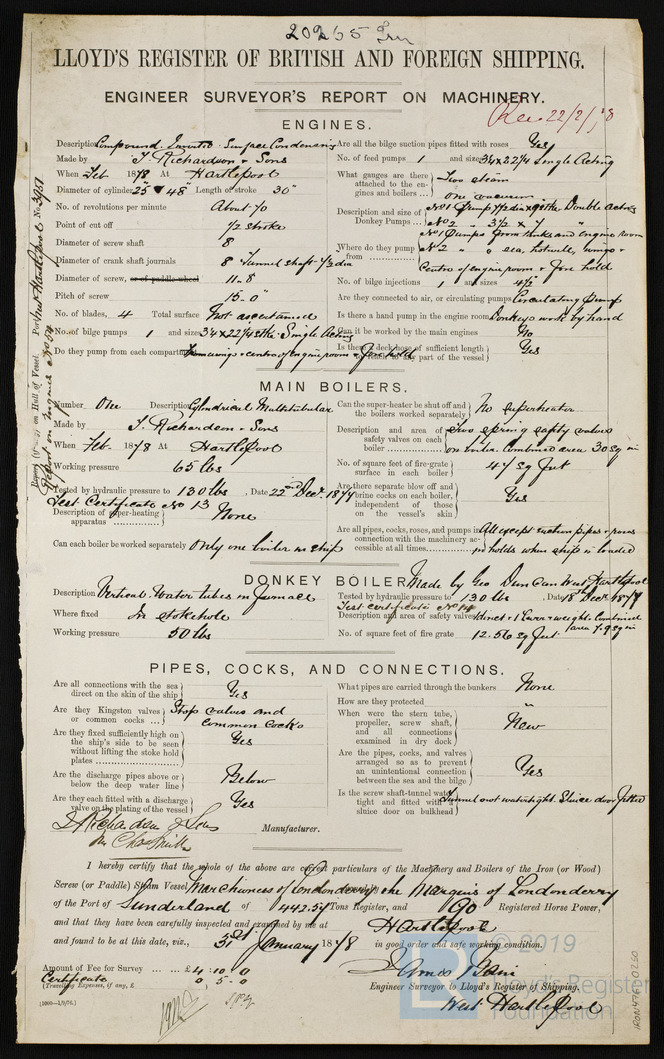 20265 Iron
LLOYD'S REGISTER OF BRITISH AND FOREIGN SHIPPING.
ENGINEER SURVEYOR'S REPORT ON MACHINERY.
Rec 22/2/78
ENGINES.
Description Compound. Inverted. Surface Condensing
Made by T. Richardson & Sons
When Feb 1878 At Hartlepool
Diameter of cylinder 25" & 48" Length of stroke 30"
No. of revolutions per minute About 70
Point of cut off 1/2 stroke
Diameter of screw shaft 8
Diameter of crank shaft journals 8 Tunnel shaft 7 1/2 dia
Diameter of screw, or of paddle wheel 11-8
Pitch of screw 15-0"
No. of blades, 4 Total surface Not ascertained
No. of bilge pumps 1 and sizes 3 1/4 x 22 1/4 stke Single Acting
Do they pump from each compartment From wings & centre of engine room & fore hold
Are all the bilge suction pipes fitted with roses Yes
No. of feed pumps 1 and sizes 3 1/4 x 22 1/4 Single Acting
What gauges are there attached to the engines and boilers ... Two steam
One vacuum
Description and size of Donkey Pumps No 1 Pump
Double Acting
No 2 " 3 1/2 x 7 "
Where do they pump from No 1 Pumps from tanks and engine room
No 2 " " sea, hotwell, wings &
Centre of engine room & Fore hold
No. of bilge injections 1 and sizes 4 1/2
Are they connected to air, or circulating pumps Circulating Pump
Is there a hand pump in the engine room Donkey works by hand
Can it be worked by the main engines No
Is there a deck hose of sufficient length to reach to any part of the vessel Yes
MAIN BOILERS.
Number One Description Cylindrical Multitubular
Made by T. Richardson & Sons
When Feb. 1878 At Hartlepool
Working pressure 65 lbs
Tested by hydraulic pressure to 130 lbs. Date 22nd Decr. 1877
Test Certificate No 13
Description of super-heating apparatus None
Can each boiler be worked separately Only one boiler in ship
Can the super-heater be shut off and the boilers worked separately No superheater
Description and area of safety valves on each boiler Two spring safety valves
on boiler. Combined area 30 sq in
No. of square feet of fire-grate surface in each boiler 47 Sq Feet
Are there separate blow off and brine cocks on each boiler, independent of those on the vessel's skin Yes
Are all pipes, cocks, roses, and pumps in connection with the machinery accessible at all times All except suction pipes & roses
in holds when ship is loaded
DONKEY BOILER Made by Geo Duncan West Hartlepool
Description Vertical. Water tubes in furnace
Where fixed In stokehole
Working pressure 50 lbs
Tested by hydraulic pressure to 130 lbs, Date 18th Decr. 1877
Test certificate No 14
Description and area of safety valves 1 direct & 1 Lever & weight. Combined
area 7.9 sq in
No. of square feet of fire grate 12.56 sq feet
PIPES, COCKS, AND CONNECTIONS.
Are all connections with the sea direct on the skin of the ship Yes
Are they Kingston valves or common cocks ... Stop valves and
Common Cocks
Are they fixed sufficiently high on the ship's side to be seen without lifting the stoke hold plates Yes
Are the discharge pipes above or below the deep water line Below
Are they each fitted with a discharge valve on the plating of the vessel Yes
What pipes are carried through the bunkers None
How are they protected "
When were the stern tube, propeller, screw shaft, and all connections examined in dry dock New
Are the pipes, cocks, and valves arranged so as to prevent an unintentional connection between the sea and the bilge Yes
Is the screw shaft-tunnel water tight and fitted with a sluice door on bulkhead Tunnel not watertight. Sluice door fitted
T Richardson & Sons
Manufacturer.
per Chas Smith
I hereby certify that the whole of the above are correct particulars of the Machinery and Boilers of the Iron (or Wood)
Screw (or Paddle) Steam Vessel Marchioness of Londonderry the Marquis of Londonderry
of the Port of Sunderland of 442.57 Tons Register, and 90 Registered Horse Power,
and that they have been carefully inspected and examined by me at Hartlepool
and found to be at this date, viz., 31st January 1878 in good order and safe working condition.
Amount of Fee for Survey ... ... £4. 10. 0
Certificate 0. 5. 0
(Travelling Expenses, if any, £
(1000—1/9/76.)
James Bain
Engineer Surveyor to Lloyd's Register of Shipping.
West Hartlepool
© 2019
Lloyd's Register
Foundation